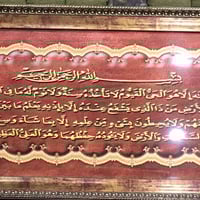 بسم الله الرحمن الرحيم
إلا هو الحي القيوم لا تأخذه سنة ولا نوم له ما في
الأرض من ذا الذي يشفع عنده إلا بإذنه يعلم ما بين
ولا يحيطون بشيء من علمه إلا بما شاء وسع
والأرض ولا يؤده حفظهما وهو العلي العظيم